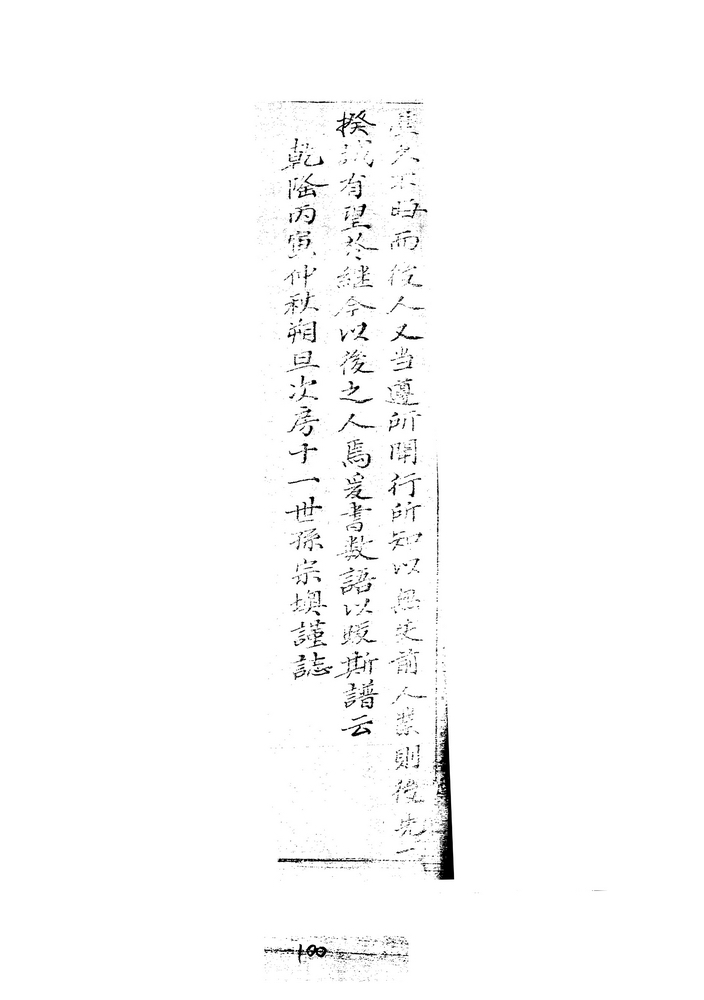 久不晦而後人又当遵所聞行所知以無失前人業則後先一
揆誠有望於継今以後之人焉爰書数語以跋斯譜云
乾隆丙寅仲秋朔旦次房十一世孫宗墺謹誌
100